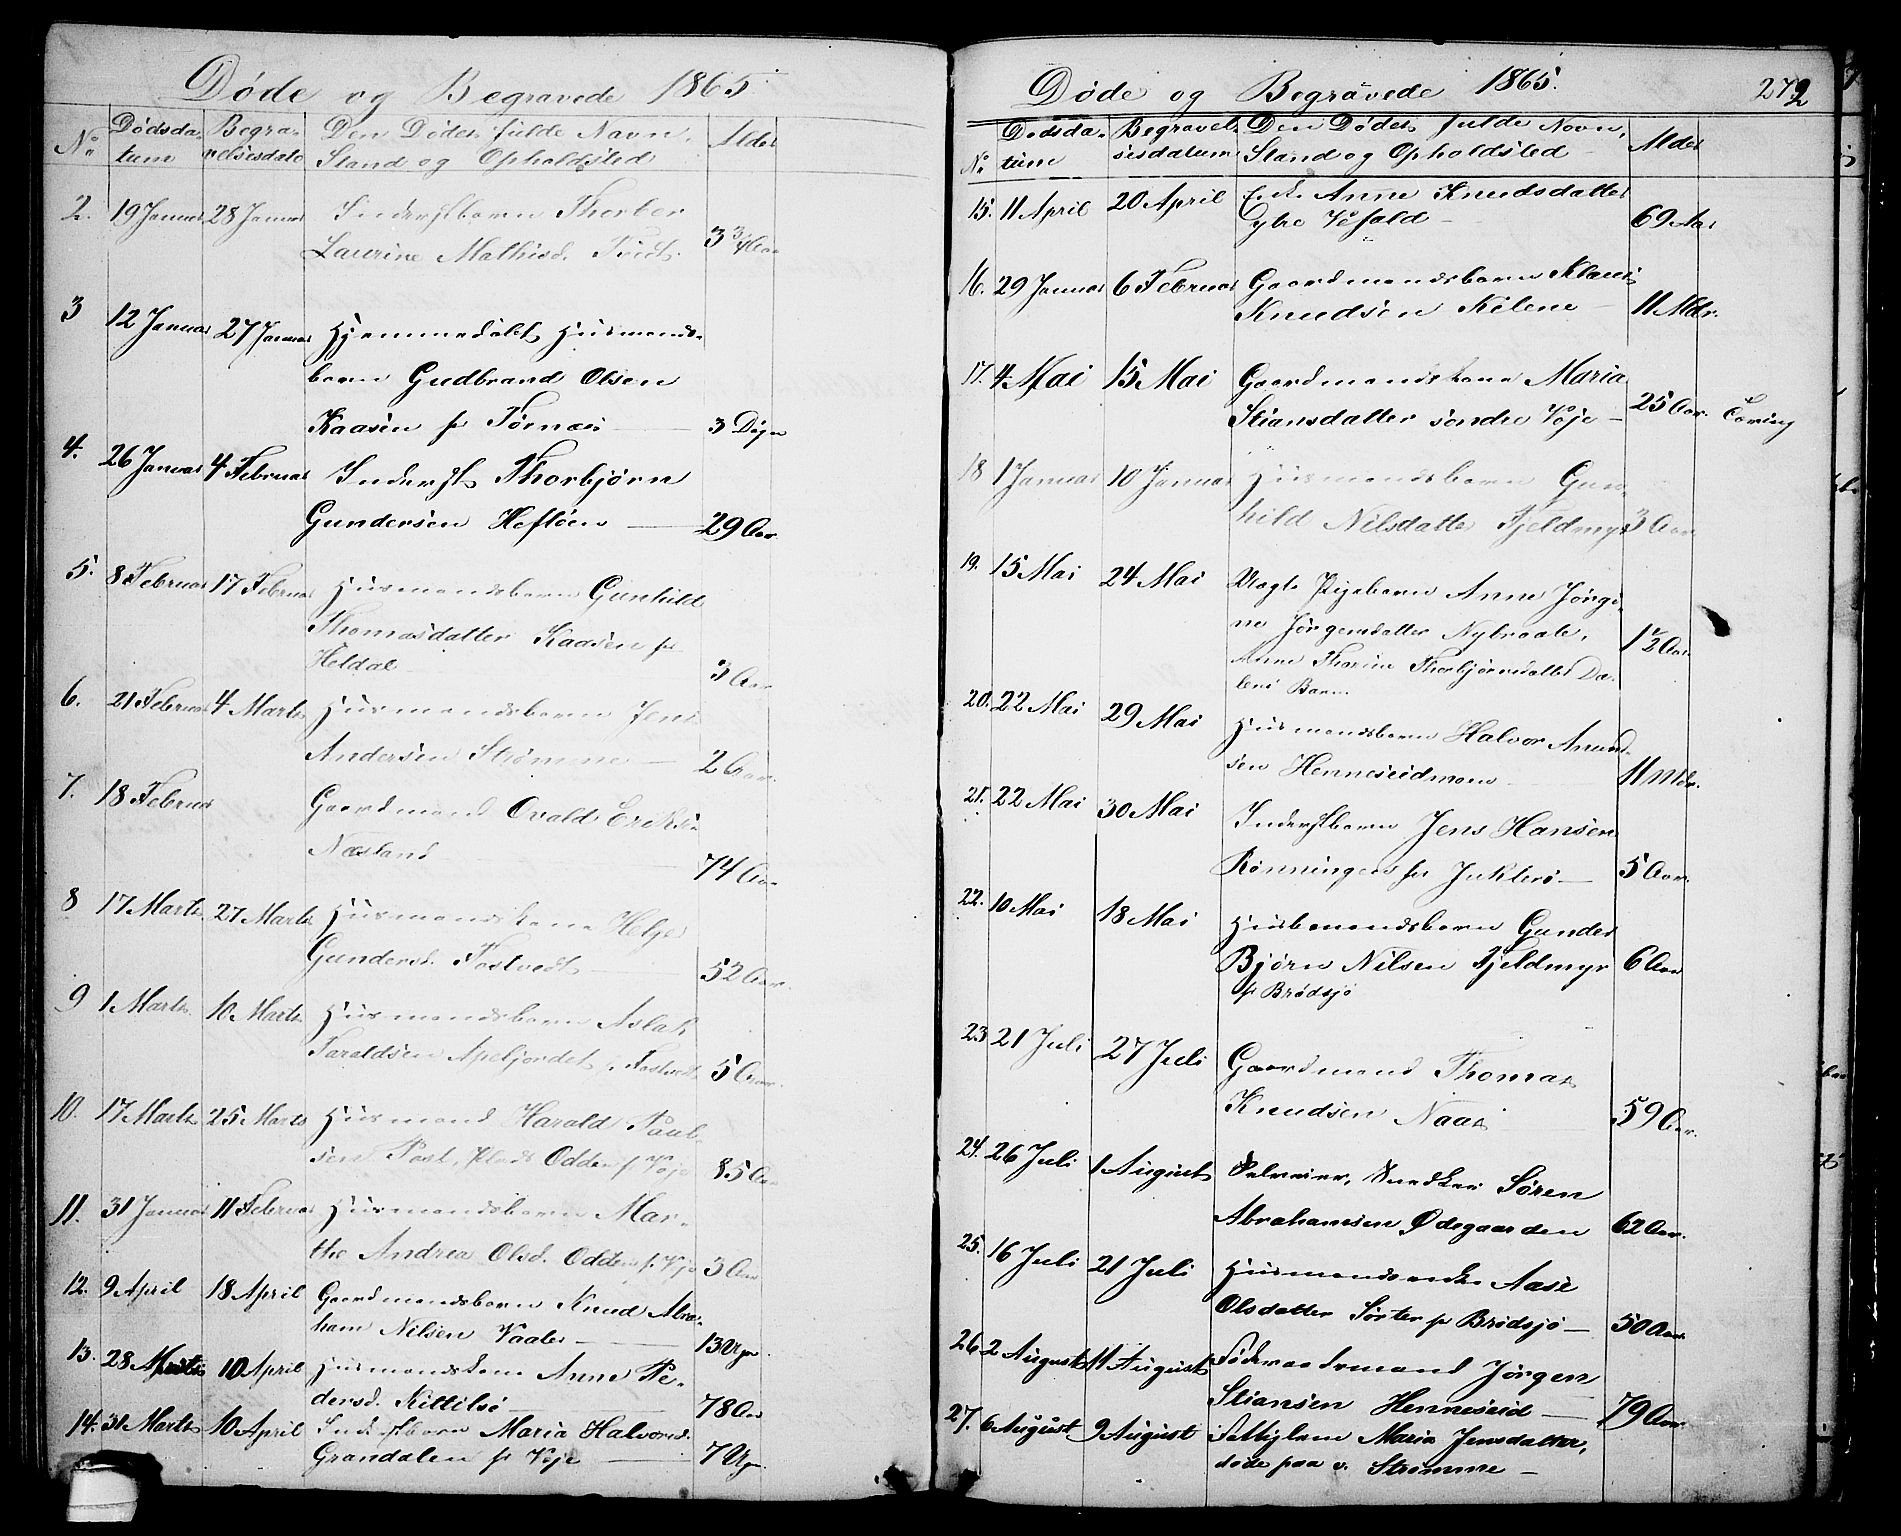 Døde og Begravede 1865
No Dødsda- Begra- Den Dødes fulde Navn, Alder
tum velsesdato Stand og Opholdsted
2. 19 Januar 28 Januar Inderstbarn Thorber
Laurine Mathisd. 3 3/4 Aar
3 12 Januar 27 Januar Hjemmedøbt Husmands-
barn Gudbrand Olsen
Kaasen p. Tørnæs 3 Døgn
4. 26 Januar 4 Februar Inderst Thorbjørn
Gundersen Hefløen 29 Aar.
5. 8 Februar 17 Februar Husmandsbarn Gunhild
Thomasdatter Kaasen p.
Heldal 3 Aar
6. 21 Februar 4 Marts Husmandsbarn Jens
Andersen Strømme 2 Aar.
7. 18 Februar Gaardmand Ovald Eriksen
Næsland 74 Aar
8 17 Marts 27 Marts Husmandskone Helge
Gundersd. Tostvedt 52 Aar.
9 1 Marts 10 Marts Husmandsbarn Aslak
Taraldsen Apeljordet p. Tostvedt 5 Aar.
10. 17 Marts 25 Marts Husmand Harald Paul-
sen Odden p. Voje 85 Aar
11. 31 Januar 11 Februar Husmandsbarn Mar-
the Andrea Olsd. Odden p. Voje 3 Aar
12. 9 April 18 April Gaardmandsbarn Knud Abra-
ham Nilsen Vaaler 13 Uger
13. 28 Marts 10 April Husmandskone Anne Pe-
dersd. Kittilsø 78 Aar
14. 31 Marts 10 April Inderstbarn Maria Halvorsd.
Grandalen p. Voje 7 Uger.
Døde og Begravede 1865. 279
No Dødsda- Begravel- Den Dødes fulde Navn, Alder
tum sesdatum Stand og Opholdsted
15. 11 April 20 April Enke Anne Knudsdatter
Ytre Vefald 69 Aar
16. 29 Januar 6 Februar Gaardmandsbarn Klaus
Knudsen Kilene 11 Mdr.
17. 4 Mai 15 Mai Gaardmandskone Maria
Stiansdatter søndre Voje 25 Aar.
18 1 Januar 10 Januar Husmandsbarn Gun-
hild Nilsdatter Fjeldmyr 3 Aar
19. 15 Mai 24 Mai Uægte Pigebarn Anne Jørgi-
ne Jørgensdatter Nybraate,
Anne Thorine Thorbjørnsdatter Da-
lens Barn. 1 1/2 Aar
20. 22 Mai 29 Mai Husmandsbarn Halvor Amund-
sen Henneseidmoen 11 Mdr.
21. 22 Mai 30 Mai Inderstbarn Jens Hansen
Rønningen p. Juklerø 5 Aar.
22. 10 Mai 18 Mai Husbmandsbarn Gunder
Bjørn Nilsen Fjeldmyr 6 Aar
p. Brødsjø
23 21 Juli 27 Juli Gaardmand Thomas
Knudsen Naas 59 Aar.
24. 26 Juli 1 August Snedker Søren
Abrahamsen Ødegaarden 62 Aar.
25. 16 Juli 21 Juli Husmandsenke Aase
Olsdatter Sørter p. Brødsjø 50 Aar
26 2 August 11 August Føderaadsmand Jørgen
Stiansen Henneseid 79 Aar.
27. 6 August 9 August Fattiglem Maria Jensdatter,
døde paa v. Strømme